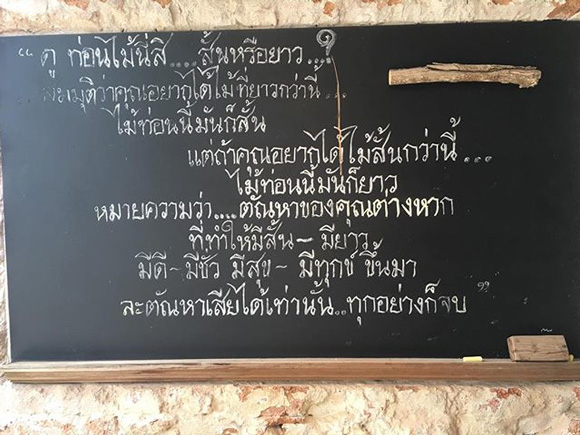 “ ดู ท่อนไม้นี่สิ.... สั้นหรือยาว...?
สมมุติว่าคุณอยากได้ไม้ที่ยาวกว่านี้...
ไม้ท่อนนี้มันก็สั้น
แต่ถ้าคุณอยากได้ไม้สั้นกว่านี้...
ไม้ท่อนนี้มันก็ยาว
หมายความว่า....ตัณหาของคุณต่างหาก
ที่ทำให้มีสั้น~ มียาว
มีดี~มีชั่ว มีสุข~ มีทุกข์ ขึ้นมา
ละตัณหาเสียได้เท่านั้น..ทุกอย่างก็จบ ”